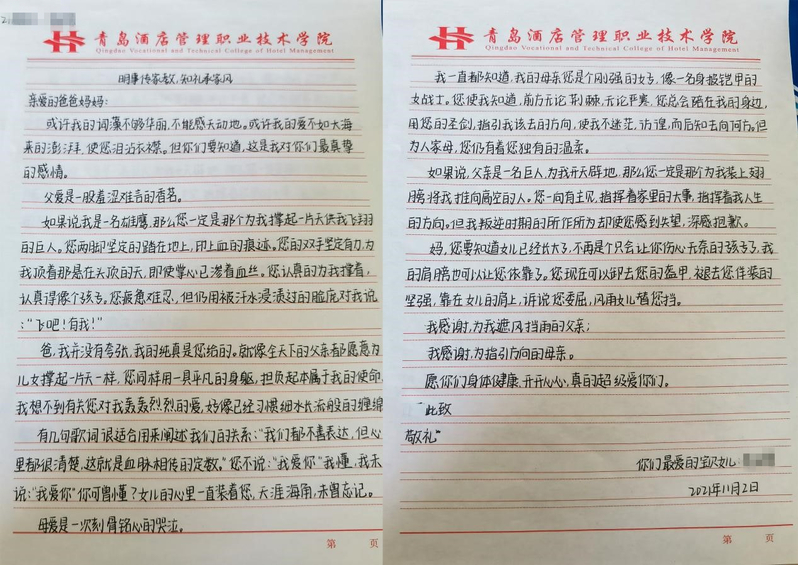 青岛酒店管理职业技术学院
Qingdao Vocational and Technical College of Hotel Management
明事传家教,知礼承家风
亲爱的爸爸妈妈:
或许我的词藻不够华丽,不能感天动地。或许我的爱不如大海
来的澎湃,使您泪沾衣襟。但你们要知道,这是我对你们最真挚
的感情。
父爱是一股羞涩难言的香茗。
如果说我是一名雄鹰,那么您一定是那个为我撑起一片天供我飞翔
的巨人。您两脚坚定的踏在地上,印上血的痕迹。您的双手坚定有力,为
我顶着那悬在头顶的天,即使掌心已渗着血丝。您认真的为我撑着,
认真得像个孩子。您疲惫难忍,但仍用被汗水浸渍过的脸庞对我说
:“飞吧!有我!”
爸,我并没有夸张,我的纯真是您给的。就像全天下的父亲都愿意为
儿女撑起一片天一样,您同样用一具平凡的身躯,担负起本属于我的使命
我想不到有关您对我轰轰烈烈的爱,好像已经习惯细水长流般的缠绵
有几句歌词很适合用来阐述我们的关系:“我们都不善表达,但心
里都很清楚,这就是血脉相传的定数。”您不说:“我爱你”我懂,我未
说:“我爱你”你可曾懂?女儿的心里一直装着您,天涯海角,未曾忘记。
母爱是一次刻骨铭心的哭泣。
第 页
青岛酒店管理职业技术学院
Qingdao Vocational and Technical College of Hotel Management
我一直都知道,我的母亲您是个刚强的女子,像一名身披铠甲的
女战士。您使我知道,前方无论荆棘,无论严寒,您总会陪在我的身边,
用您的圣剑,指引我该去的方向,使我不迷茫,彷徨,而后知去向何方。但
为人家母,您仍有着您独有的温柔。
如果说,父亲是一名巨人,为我开天辟地,那么您一定是那个为我装上翅
膀将我推向高空的人。您一向有主见,指挥着家里的大事,指挥着我人生
的方向。但我叛逆时期的所作所为却使您感到失望,深感抱歉。
妈,您要知道女儿已经长大了,不再是个只会让你伤心无奈的孩子了,我
的肩膀也可以让您依靠了。您现在可以卸去您的盔甲,褪去您佯装的
坚强,靠在女儿的肩上,诉说您委屈,风雨女儿替您挡。
我感谢,为我遮风挡雨的父亲;
我感谢,为指引方向的母亲。
愿你们身体健康,开开心心,真的超级爱你们。
此致
敬礼
你们最爱的宝贝女儿
2021年11月2日
第 页